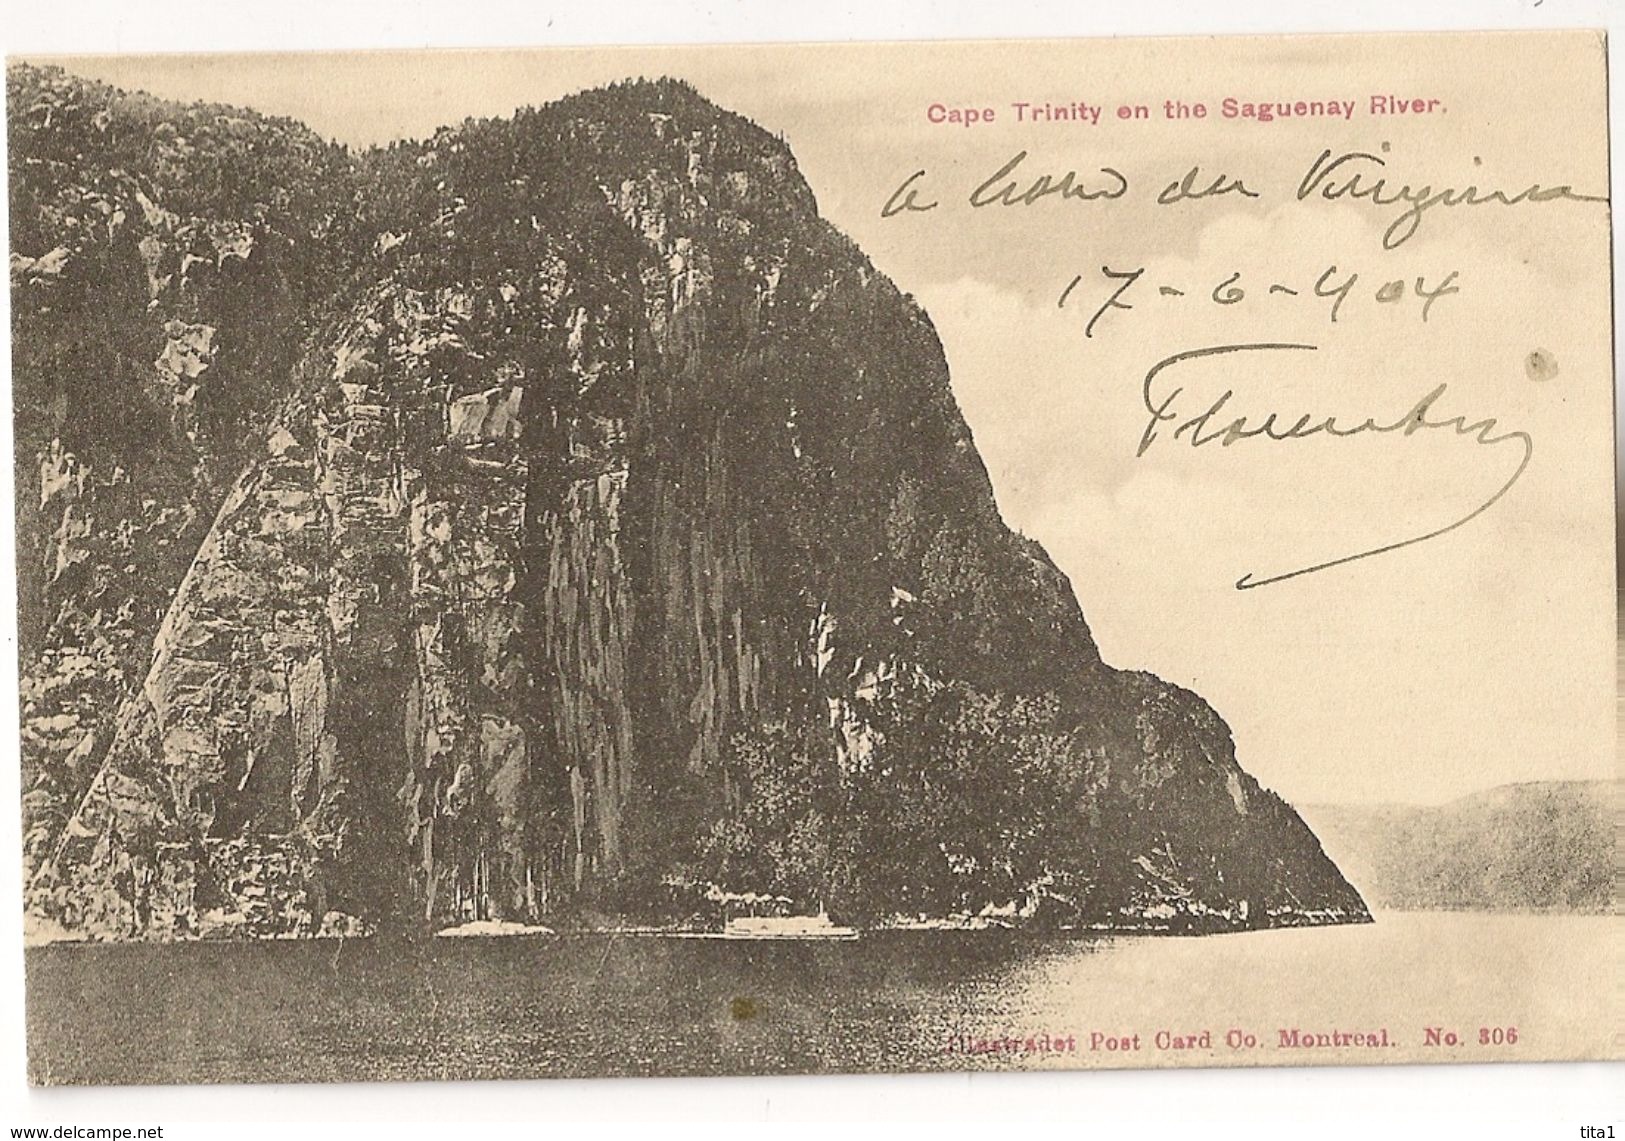 Cape Trinity on the Saguenay River.
a bord du Virginia
17-6-904
Illustradet Post Card Co. Montreal. No. 306
www.delcampe.net
tita1